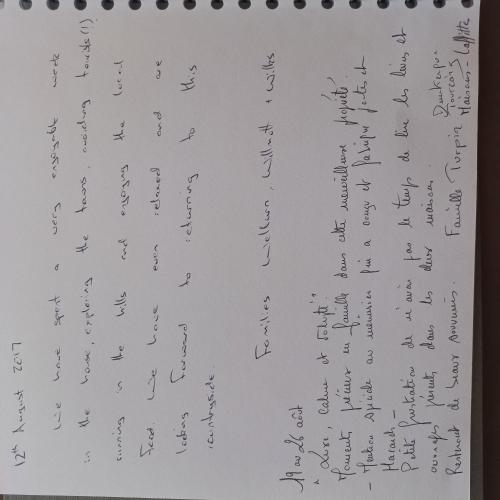 12th August 2017
We have spent a very enjoyable week
in the house, exploring the towns, avoiding tourists(!)
running in the hills and enjoying the local
food. We have even relaxed and are
looking forward to returning to this
countryside.
Families Welburn, Willmott + Wilbs
19 au 26 août
"Luxe, Calme et Volupté".
Moments précieux en famille dans cette merveilleuse propriété.
- Mention spéciale au menuisier qui a conçu et fabriqué portes et
placards -
Petite frustration de n'avoir pas le temps de lire les livres et
ouvrages présents dans les deux maisons.
Resteront de beaux souvenirs.
Famille Turpin
Dunkerque
Tourcoing
Maisons-Laffitte